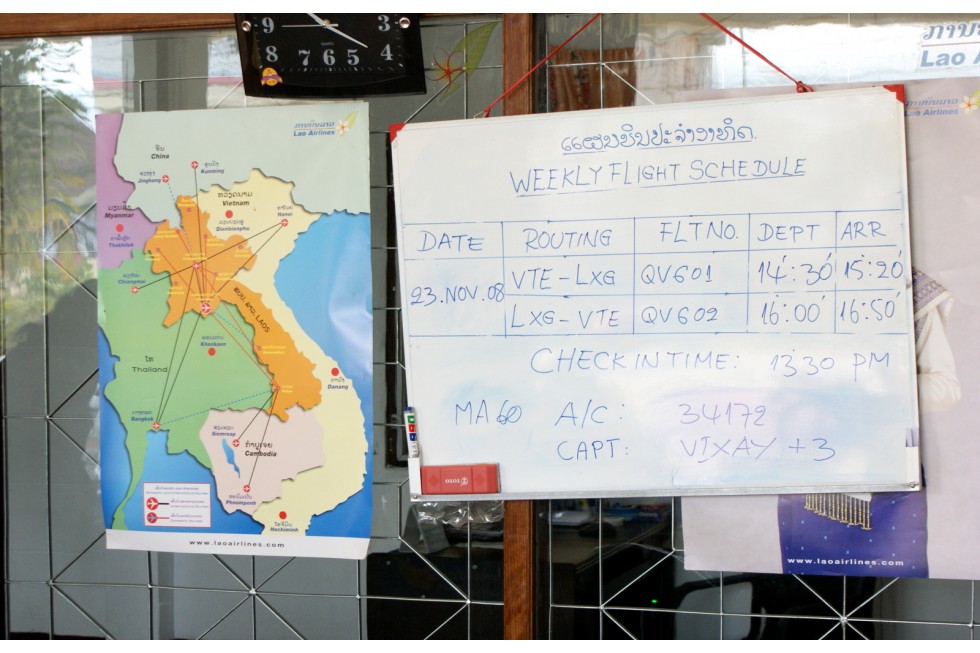 9 3
8 7 6 5 4
Lao A
ການບິນລາວ
Lao Airlines
Lao Airlines
ຈີນ
China
Kunming
Jinghong
ຫວຽດນາມ
Vietnam
Myanmar
Dienbienphu
Hanoi
Chiangmai
ສປປ ລາວ, LAOS
Khonkaen
ໄທ
Thailand
Danang
Bangkok
Siemreap
ກຳປູເຈຍ
Cambodia
Phnompenh
Hochiminh
www.laoairlines.com
ຕາຕະລາງບິນປະຈຳອາທິດ
WEEKLY FLIGHT SCHEDULE
DATE ROUTING FLT NO. DEPT ARR
23.NOV.08 VTE-LXG QV601 14:30 15:20
LXG-VTE QV602 16:00 16:50
CHECK IN TIME: 13:30 PM
MA 60 A/C: 34172
CAPT: VIXAY +3
www.laoairlines.com